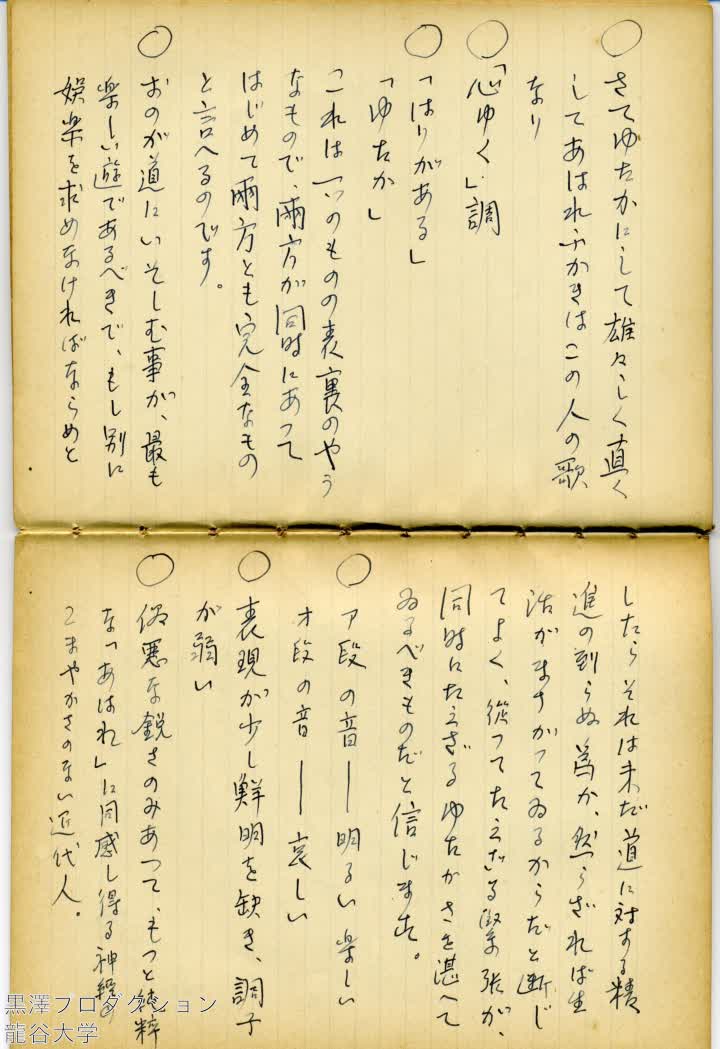 ○ さてゆたかにして雄々しく直く
してあはれふかきはこの人の歌
なり
○ 「心ゆく」調
○ 「はりがある」
「ゆたか」
これは一つのものの表裏のやう
なもので、兩方が同時にあつて
はじめて兩方とも完全なもの
と言へるのです。
○ おのが道にいそしむ事が、最も
楽しい遊であるべきで、もし別に
娯楽を求めなければならめと
したらそれは未だ道に対する精
進の到らぬ為か、然らざれば生
活がまちがつてゐるからだと断じ
てよく、從つてたえざる緊張が、
同時にたえざるゆたかさを湛へて
ゐるべきものだと信じます。
○ ア段の音――明るい楽しい
オ段の音――哀しい
○ 表現が少し鮮明を缺き、調子
が弱い
○ 俗悪な鋭さのみあつて、もつと純粋
な「あはれ」に同感し得る神経の
こまやかさのない近代人。
黒澤プロダクション
龍谷大学